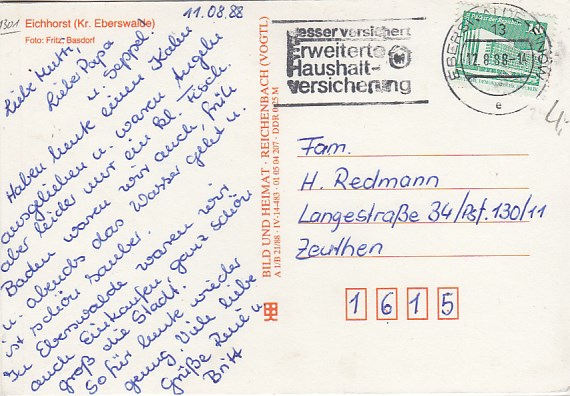 1301
Eichhorst (Kr. Eberswalde)
Foto: Fritz, Basdorf
11.08.88
Liebe Mutti,
liebe Papa
u. Seppel.
Haben heute einen Kahn
ausgeliehen u. waren Angeln
aber leider nur ein kl. Fisch.
Baden waren wir auch, früh
u. abends das Wasser geht u.
ist schön sauber.
In Eberswalde waren wir
auch Einkaufen ganz schön
groß die Stadt.
So für heute wieder
genug Viele liebe
Grüße René u
Britt
BILD UND HEIMAT · REICHENBACH (VOGTL)
A 1/B 21/88 · IV-14-483 · 01 05 04 207 · DDR 0,25 M
Besser versichert
Erweiterte
Haushalt-
versicherung
13
12.8.88-14
e
4,-
Fam.
H. Redmann
Langestraße 34/Pst. 130/11
Zeuthen
1615